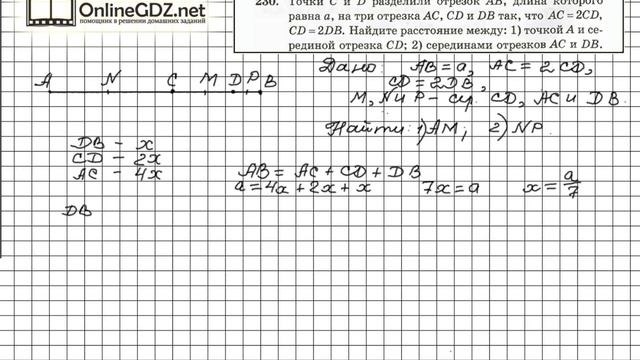 OnlineGDZ.net
помощник в решении домашних заданий
230. Точки C и D разделили отрезок AB, длина которого
равна a, на три отрезка AC, CD и DB так, что AC = 2CD,
CD = 2DB. Найдите расстояние между: 1) точкой A и се-
рединой отрезка CD; 2) серединами отрезков AC и DB.
A N C M D P B
Дано: AB = a, AC = 2CD,
CD = 2DB,
M, N и P - ср. CD, AC и DB.
Найти: 1) AM; 2) NP.
DB - x
CD - 2x
AC - 4x
AB = AC + CD + DB
a = 4x + 2x + x 7x = a x = a/7
DB